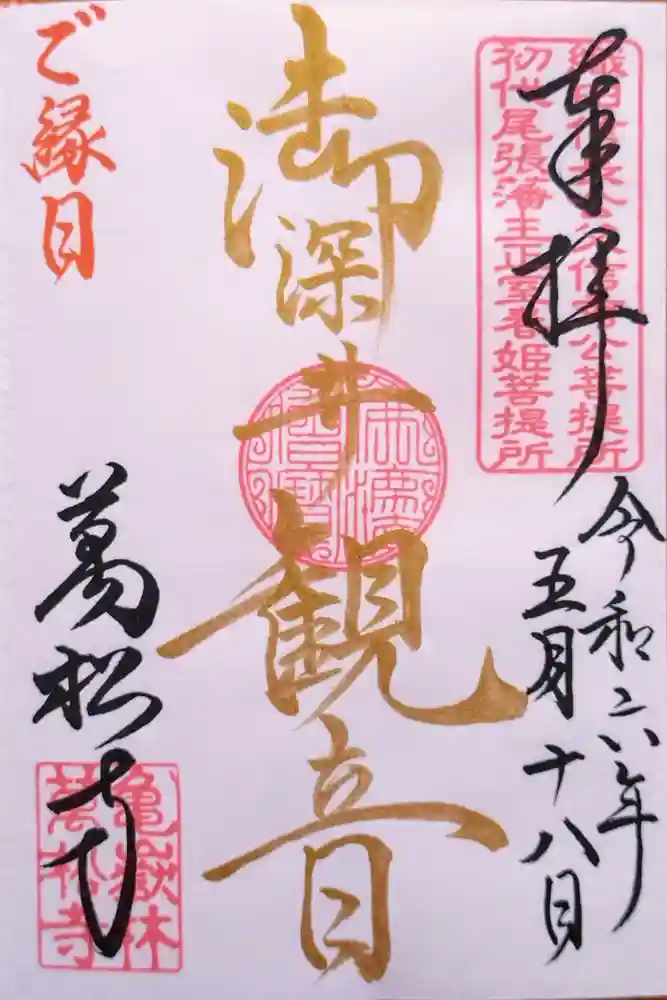 奉拝
織田信長公父信秀公菩提所
初代尾張藩主正室春姫菩提所
令和六年
五月十八日
御深井観音
ご縁日
萬松寺
亀嶽林
萬松寺